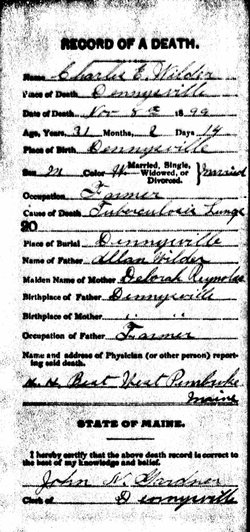 RECORD OF A DEATH.
Name Charlie E. Wilder
Place of Death Dennysville
Date of Death Nov 8th 1899
Age, Years, 31 Months, 2 Days 19
Place of Birth Dennysville
Sex M Color W Married, Single, Widowed, or Divorced. } Married
Occupation Farmer
Cause of Death Tuberculosis Lungs
20
Place of Burial Dennysville
Name of Father Allan Wilder
Maiden Name of Mother Deborah Reynolds
Birthplace of Father Dennysville
Birthplace of Mother " "
Occupation of Father Farmer
Name and address of Physician (or other person) reporting said death.
Best West Pembroke
Maine
STATE OF MAINE.
I hereby certify that the above death record is correct to
the best of my knowledge and belief.
John N. Gardner
Clerk of Dennysville